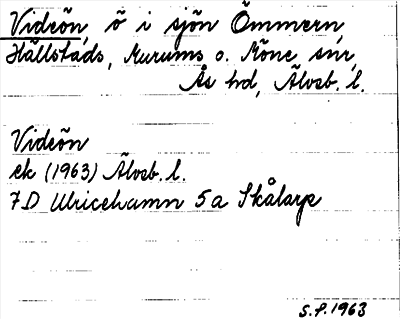 Videön, ö i sjön Ömmern,
Hällstads, Murums o. Möne snr,
Ås hd, Älvsb. l.
Videön
ek (1963) Älvsb. l.
7D Ulricehamn 5a Skålarp
S.F. 1963